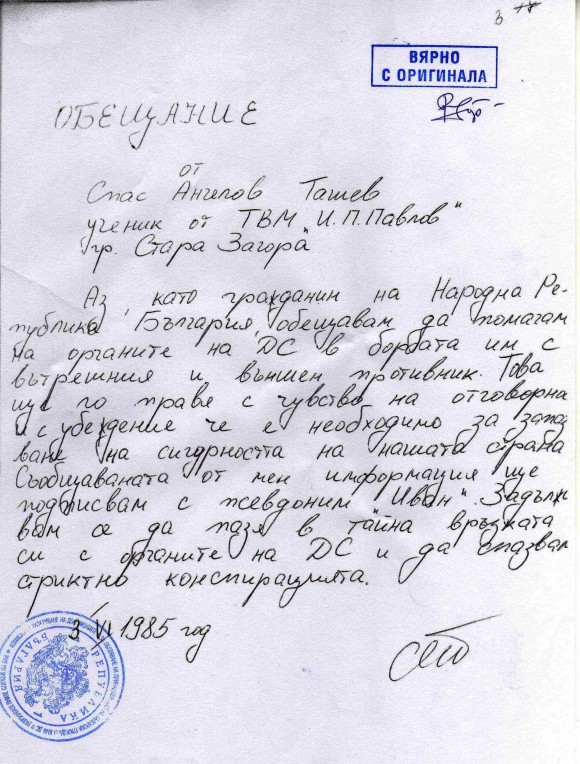 3
ВЯРНО
С ОРИГИНАЛА
ОБЕЩАНИЕ
от
Спас Ангелов Ташев
ученик от ТВМ „И.П.Павлов"
гр. Стара Загора
Аз, като гражданин на Народна Ре-
публика България, обещавам да помагам
на органите на ДС в борбата им с
вътрешния и външен противник. Това
ще го правя с чувство на отговорна
и с убеждение че е необходимо за запаз
ване на сигурността на нашата страна
Съобщаваната от мен информация ще
подписвам с псевдоним "Иван". Задълж
вам се да пазя в тайна връзката
си с органите на ДС и да спазвам
стриктно конспирацията.
3 VI 1985 год
РЕПУБЛИКА БЪЛГАРИЯ